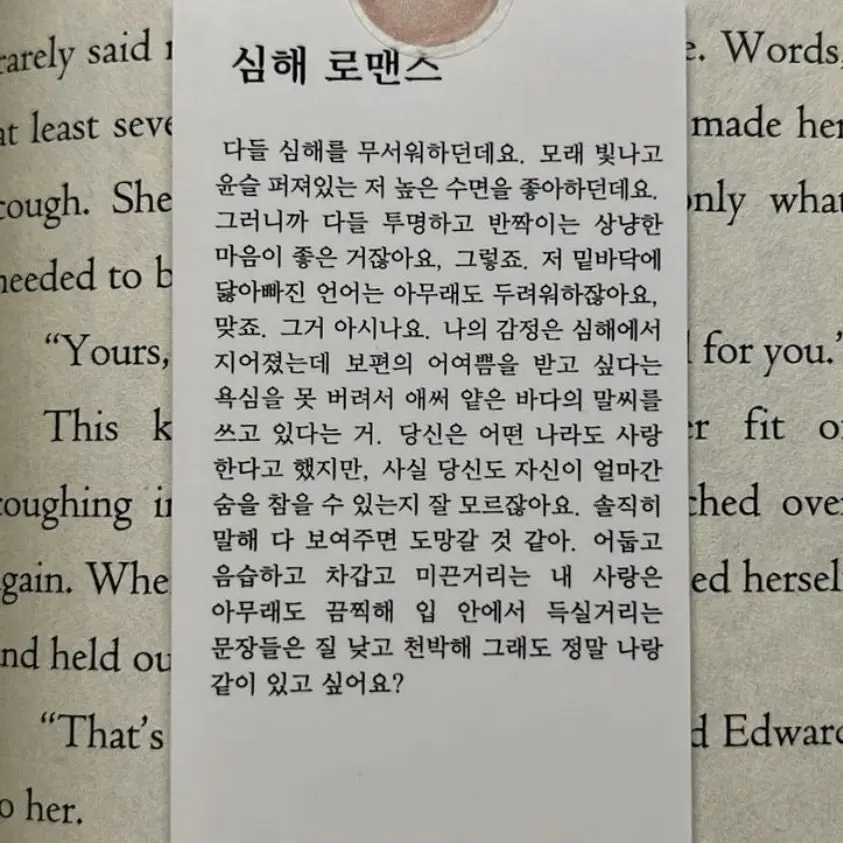 심해 로맨스
다들 심해를 무서워하던데요. 모래 빛나고
윤슬 퍼져있는 저 높은 수면을 좋아하던데요.
그러니까 다들 투명하고 반짝이는 상냥한
마음이 좋은 거잖아요, 그렇죠. 저 밑바닥에
닳아빠진 언어는 아무래도 두려워하잖아요,
맞죠. 그거 아시나요. 나의 감정은 심해에서
지어졌는데 보편의 어여쁨을 받고 싶다는
욕심을 못 버려서 애써 얕은 바다의 말씨를
쓰고 있다는 거. 당신은 어떤 나라도 사랑
한다고 했지만, 사실 당신도 자신이 얼마간
숨을 참을 수 있는지 잘 모르잖아요. 솔직히
말해 다 보여주면 도망갈 것 같아. 어둡고
음습하고 차갑고 미끈거리는 내 사랑은
아무래도 끔찍해 입 안에서 득실거리는
문장들은 질 낮고 천박해 그래도 정말 나랑
같이 있고 싶어요?
rarely said
at least
cough. She
needed to
“Yours,
This
coughing
again.
and held
“That’s
to her.
Words,
made her
only what
for you.”
fit
over
Edward